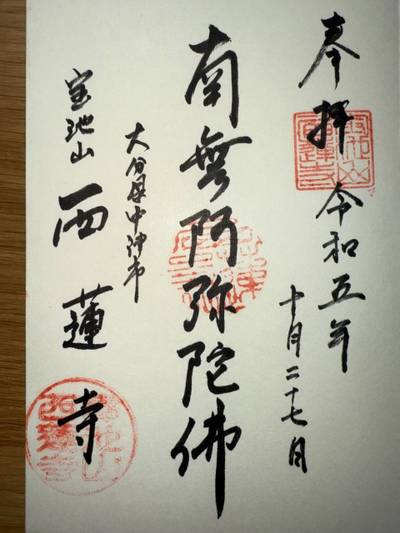 奉拝
令和五年
十月二十七日
南無阿弥陀佛
大分県中津市
宝池山
西蓮寺